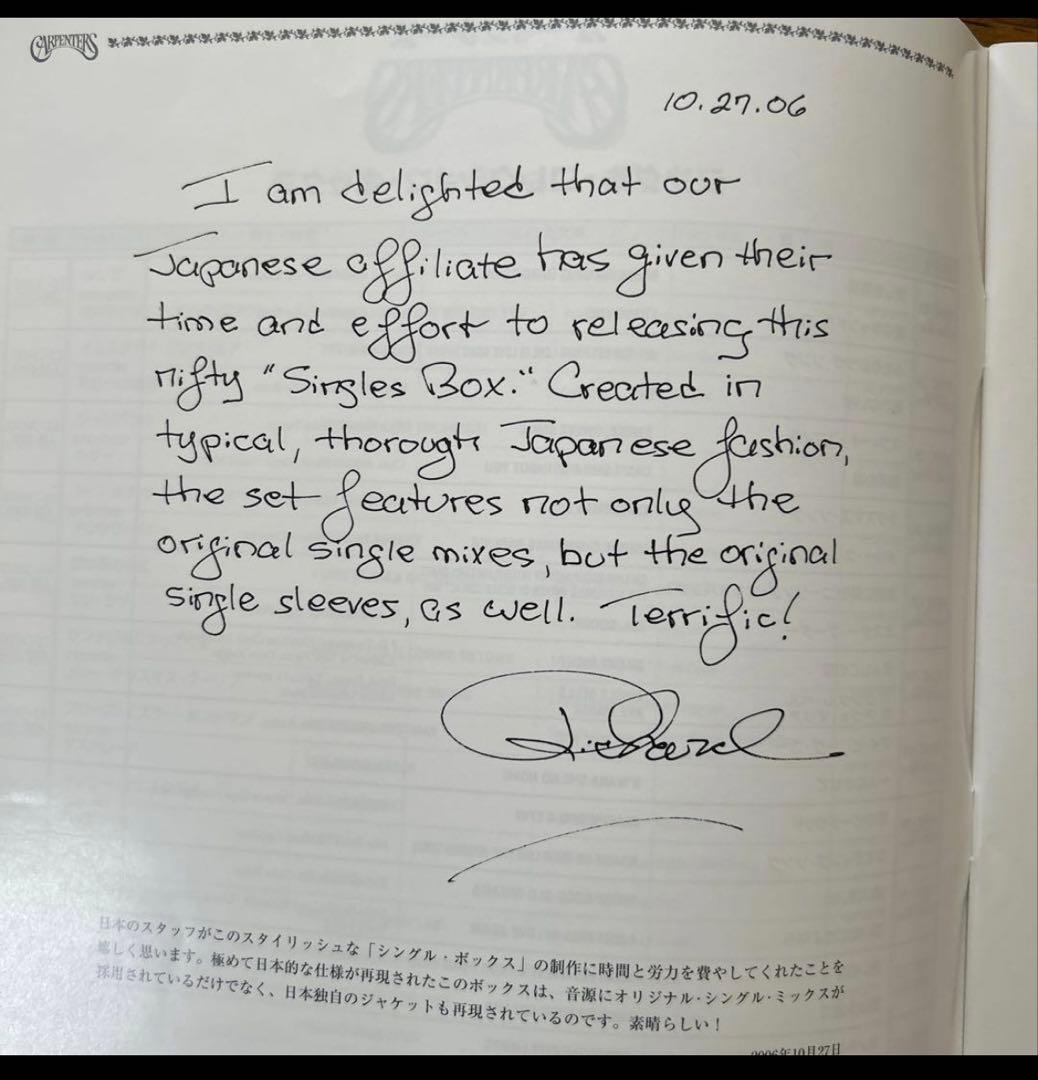 CARPENTERS
10.27.06
I am delighted that our
Japanese affiliate has given their
time and effort to releasing this
nifty "Singles Box." Created in
typical, thorough Japanese fashion,
the set features not only the
original single mixes, but the original
single sleeves, as well. Terrific!
Richard
日本のスタッフがこのスタイリッシュな「シングル・ボックス」の制作に時間と労力を費やしてくれたことを
嬉しく思います。極めて日本的な仕様が再現されたこのボックスは、音源にオリジナル・シングル・ミックスが
採用されているだけでなく、日本独自のジャケットも再現されているのです。素晴らしい！
2006年10月27日